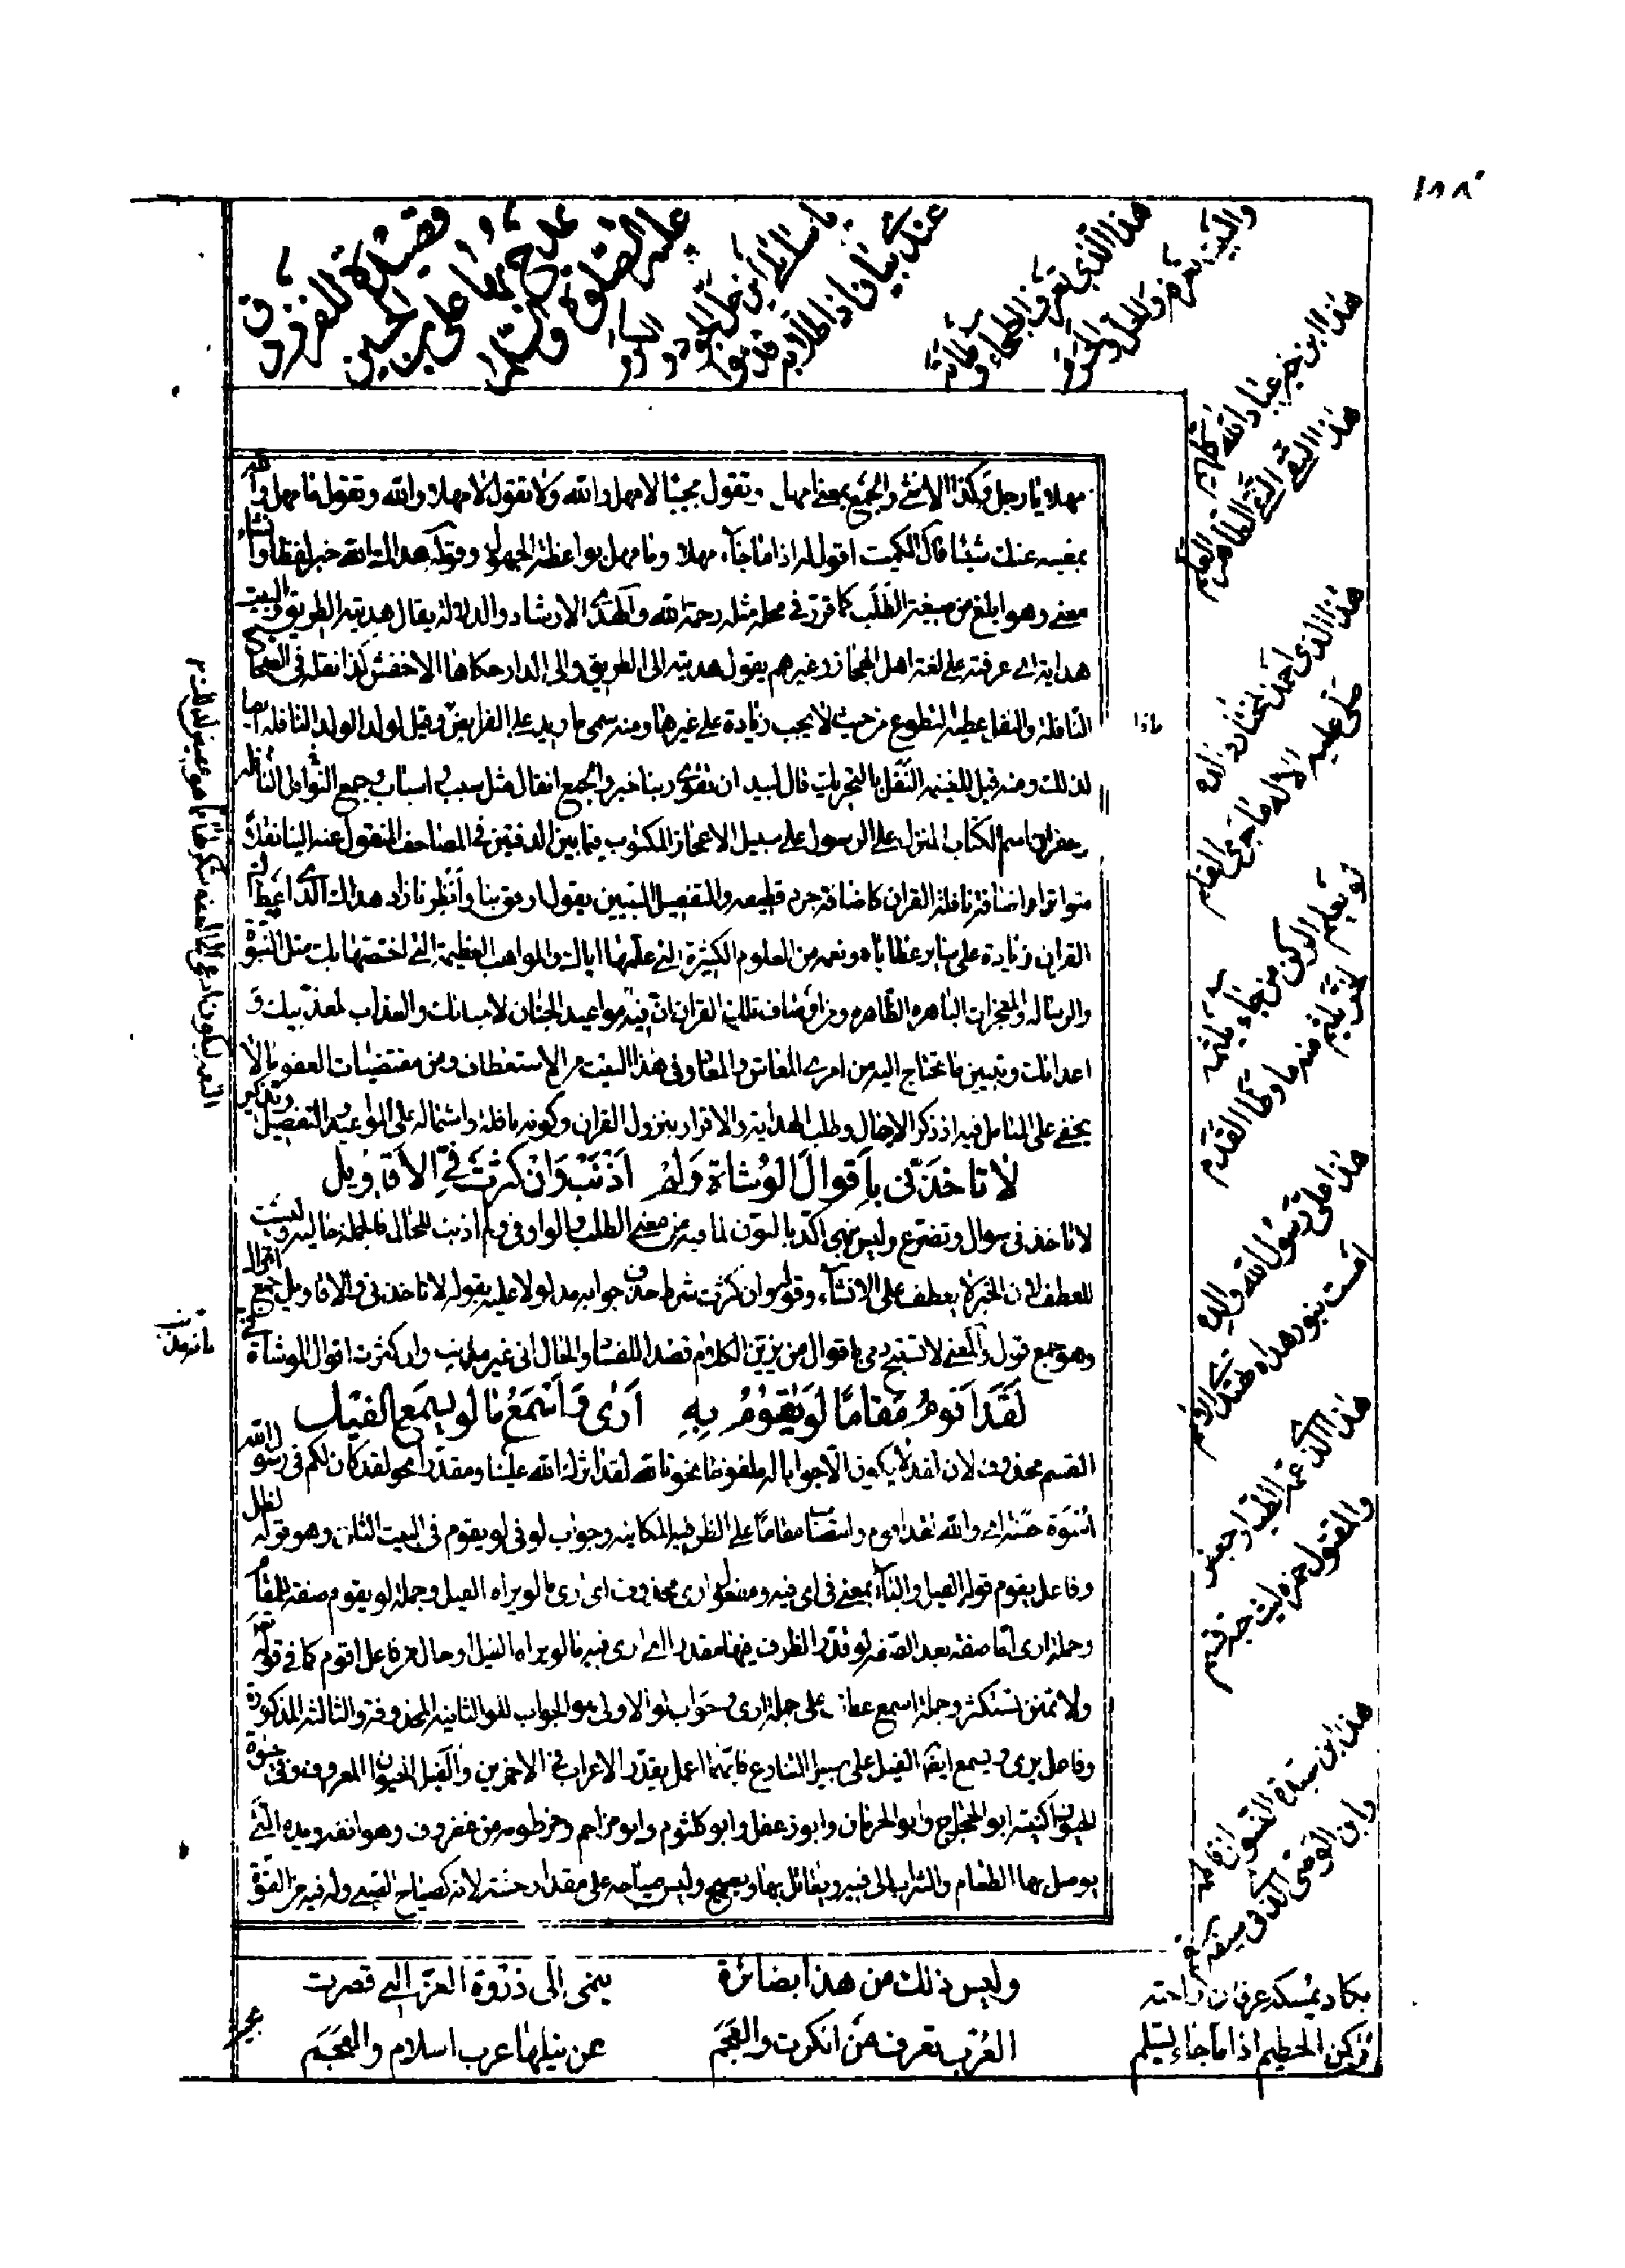 ١٨٨
قصيدة للفرزدق
يمدح بها علي بن الحسين
عليه الصلوة والسلام
يا سائلي اين حل الجود والكرم
عندي بيان اذا طلابه قدموا
هذا الذي تعرف البطحاء وطأته
والبيت يعرفه والحل والحرم
هذا ابن خير عباد الله كلهم
هذا التقي النقي الطاهر العلم
هذا الذي احمد المختار والده
صلى عليه الاله ما جرى القلم
لو يعلم الركن من جاء يلثمه
لخر يلثم منه ما وطا القدم
هذا علي رسول الله والده
امست بنور هداه تهتدي الامم
هذا الذي عمه الطيار جعفر
والمقتول حمزة ليث حبه قسم
هذا ابن سيدة النسوان فاطمة
وابن الوصي الذي في سيفه
يكاد يمسكه عرفان راحته
ركن الحطيم اذا ما جاء يستلم
وليس ذلك من هذا بضائره
العرب تعرف من انكرت والعجم
ينمى الى ذروة العز التي قصرت
عن نيلها عرب اسلام والعجم
مهلا يا رجل وكذا الانثى والجمع بمعنى امهل وتقول مجيبا لا مهل والله ولا تقول لا مهلا والله وتقول ما مهل والله
بمغنية عنك شيئا قال الكميت اقول له اذا ما جاء مهلا وما مهل بواعظة الجهول وقوله هداك الله خبر لفظا وانشاء
معنى وهو ابلغ من صيغة الطلب كما قرر في محله مثل رحمه الله والهدى الارشاد والدلالة يقال هديته الطريق والبيت
هداية اي عرفته على لغة اهل الحجاز وغيرهم يقول هديته الى الطريق والى الدار حكاها الاخفش كذا نقله في الصحاح
النافلة والنفل عطية التطوع من حيث لا يجب زيادة على غيرها ومنه سمي ما يزيد على الفرايض وقيل لولد الولد النافلة ايضا
لذلك ومنه قيل للغنيمة النفل بالتحريك قال لبيد ان تقوى ربنا خير والجمع انفال مثل سبب واسباب وجمع
القران اسم الكتاب المنزل على الرسول على سبيل الاعجاز المكتوب فيما بين الدفتين في المصاحف المنقول عنه الينا نقلا
متواترا واضافة نافلة القران كاضافة جرد قطيفة والتفصيل التبيين يقول ارفق بنا وانظرنا زاد هداك الذي اعطاك
القران زيادة على ساير عطاياه ونعمه من العلوم الكثيرة التي علمها اياك والمواهب العظيمة التي اختصها بك مثل النبوة
والرسالة والمعجزات الباهرة الظاهرة ومن اوصاف تلك القران ان فيه مواعيد الجنان لاحبائك والعذاب لمعذبيك و
اعدائك وتبيين ما يحتاج اليه من امري المعاش والمعاد وفي هذا البيت من الاستعطاف ومن مقتضيات العفو ما لا
يخفى على المتامل فيه اذ ذكر الامهال وطلب الهداية والاقرار بنزول القران وكونه نافلة واشتماله على المواعيد والتفصيل
لا تاخذني باقوال الوشاة ولم اذنب وان كثرت في الاقاويل
لا تاخذني سوال وتضرع وليس نهي اكد بالنون لما فيه من معنى الطلب والواو في ولم اذنب للحال فالجملة حالية وليست
للعطف لان الخبر لا يعطف على الانشاء وقوله وان كثرت شرط حذف جوابه مدلولا عليه بقوله لا تاخذني والاقاويل جمع اقوال
وهو جمع قول والمعنى لا تستبح دمي باقوال من يزين الكلام قصدا للفساد والحال اني غير مذنب وان كثرت اقوال الوشاة
لقد اقوم مقاما لو يقوم به ارى واسمع ما لو يسمع الفيل
القسم محذوف لان لقد لا يكون الا جوابا له ملفوظا نحو تالله لقد اثرك الله علينا ومقدرا نحو لقد كان لكم في رسول الله
اسوة حسنة اي والله لقد اقوم وانتصب مقاما على الظرفية المكانية وجواب لو في لو يقوم في البيت الثاني وهو قوله لظل
وفاعل يقوم قوله الفيل والباء بمعنى في اي فيه ومفعول ارى محذوف اي ارى ما لو يراه الفيل وجملة لو يقوم صفة لمقاما
وجملة ارى اما صفة بعد الصفة لو قدر الظرف فيها مقدرا اي ارى فيه ما لو يراه الفيل او حال من فاعل اقوم كما في قوله تعالى
ولا تمنن تستكثر وجملة اسمع عطف على جملة ارى وجواب لو الاولى هو الجواب للو الثانية المحذوفة والثالثة المذكورة
وفاعل يرى ويسمع ايضا الفيل على سبيل التنازع فايهما اعمل يقدر الاعراب في الاخرين والفيل الحيوان المعروف وفي حيوة
الحيوان كنيته ابو الحجاج وابو الحرمان وابو دغفل وابو كلثوم وابو مزاحم وخرطومه من غضروف وهو انفه ويده التي
يوصل بها الطعام والشراب الى فيه ويقاتل بها ويصيح وليس صياحه على مقدار جثته لانه كصياح الصبي وله فيه من القوة